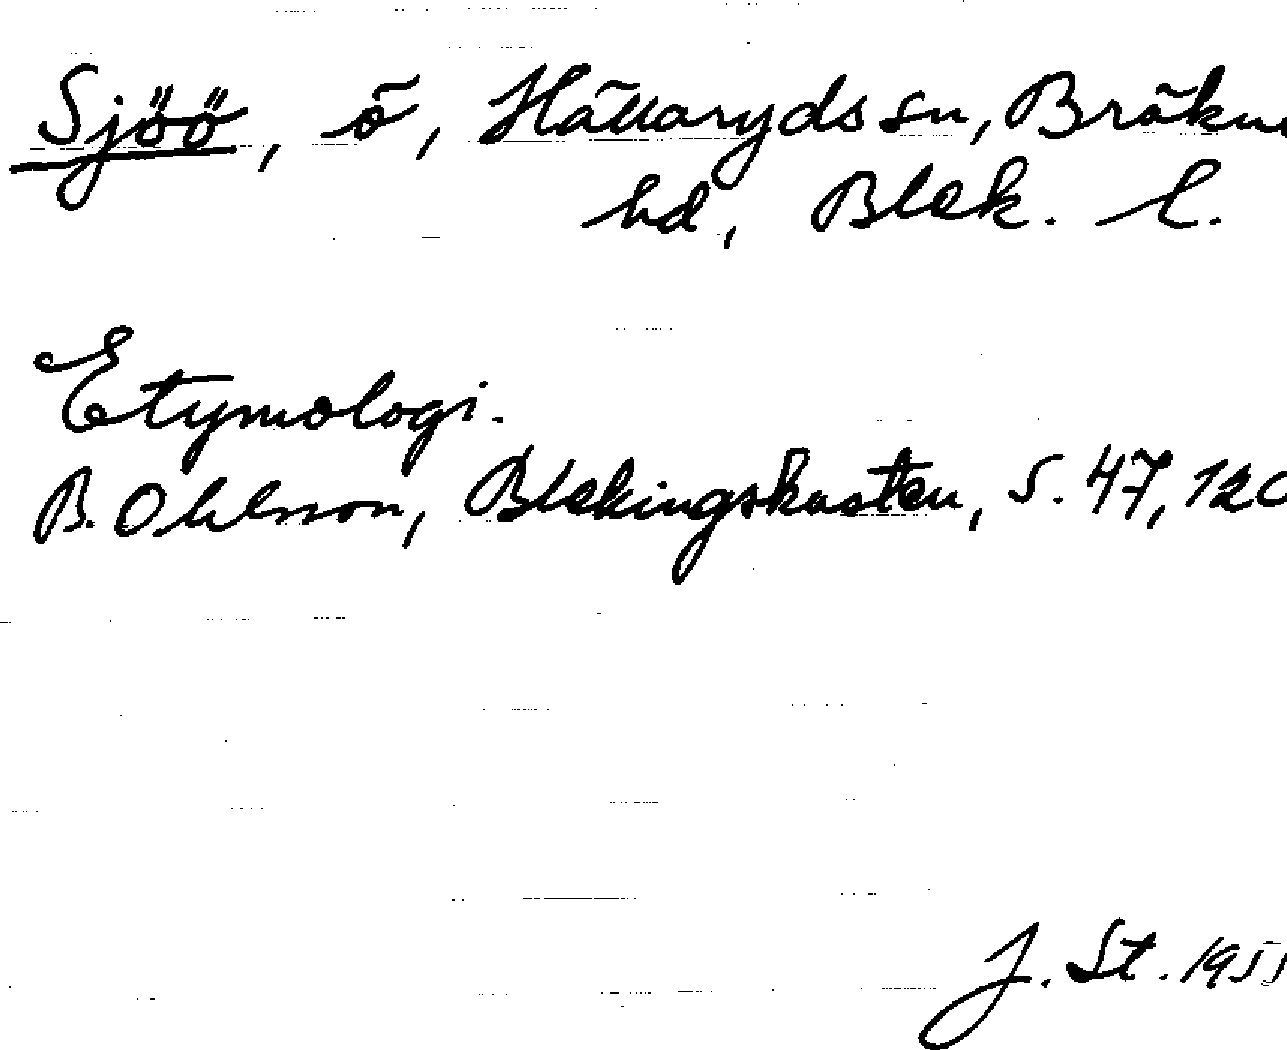 Sjöö, ö, Hällaryds sn, Bräkne
hd, Blek. l.
Etymologi.
B. Ohlsson, Blekingskusten, s. 47, 120
J. St. 1955